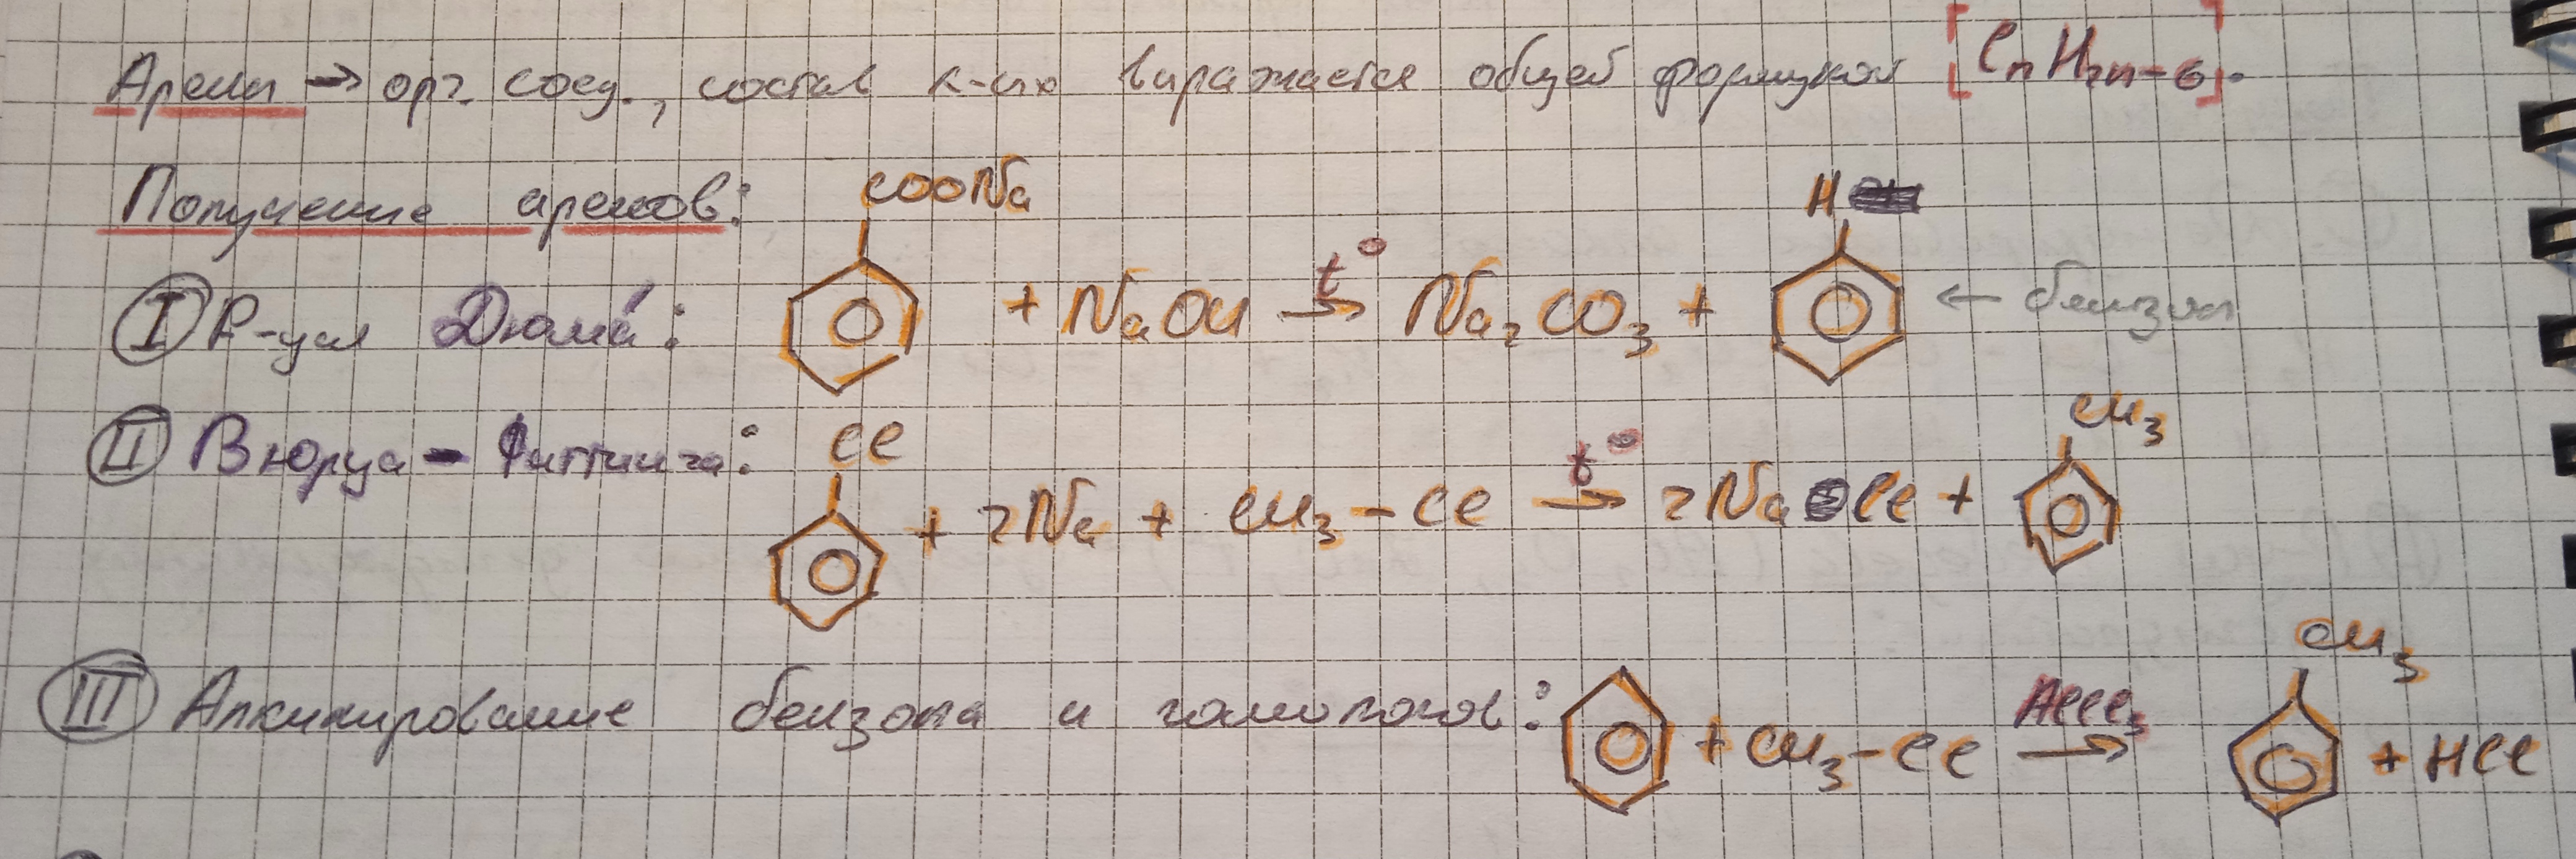 Арены → орг. соед., состав к-ых выражается общей формулой [CnH2n-6].
Получение аренов:
COONa H
I Р-ция Дюма: + NaOH t° → Na2CO3 + ← бензол
CH3
II Вюрца - Фиттинга: Cl
+ 2Na + CH3 - Cl t° → 2NaCl +
CH3
III Алкилирование бензола и гомологов: + CH3-Cl AlCl3 → + HCl